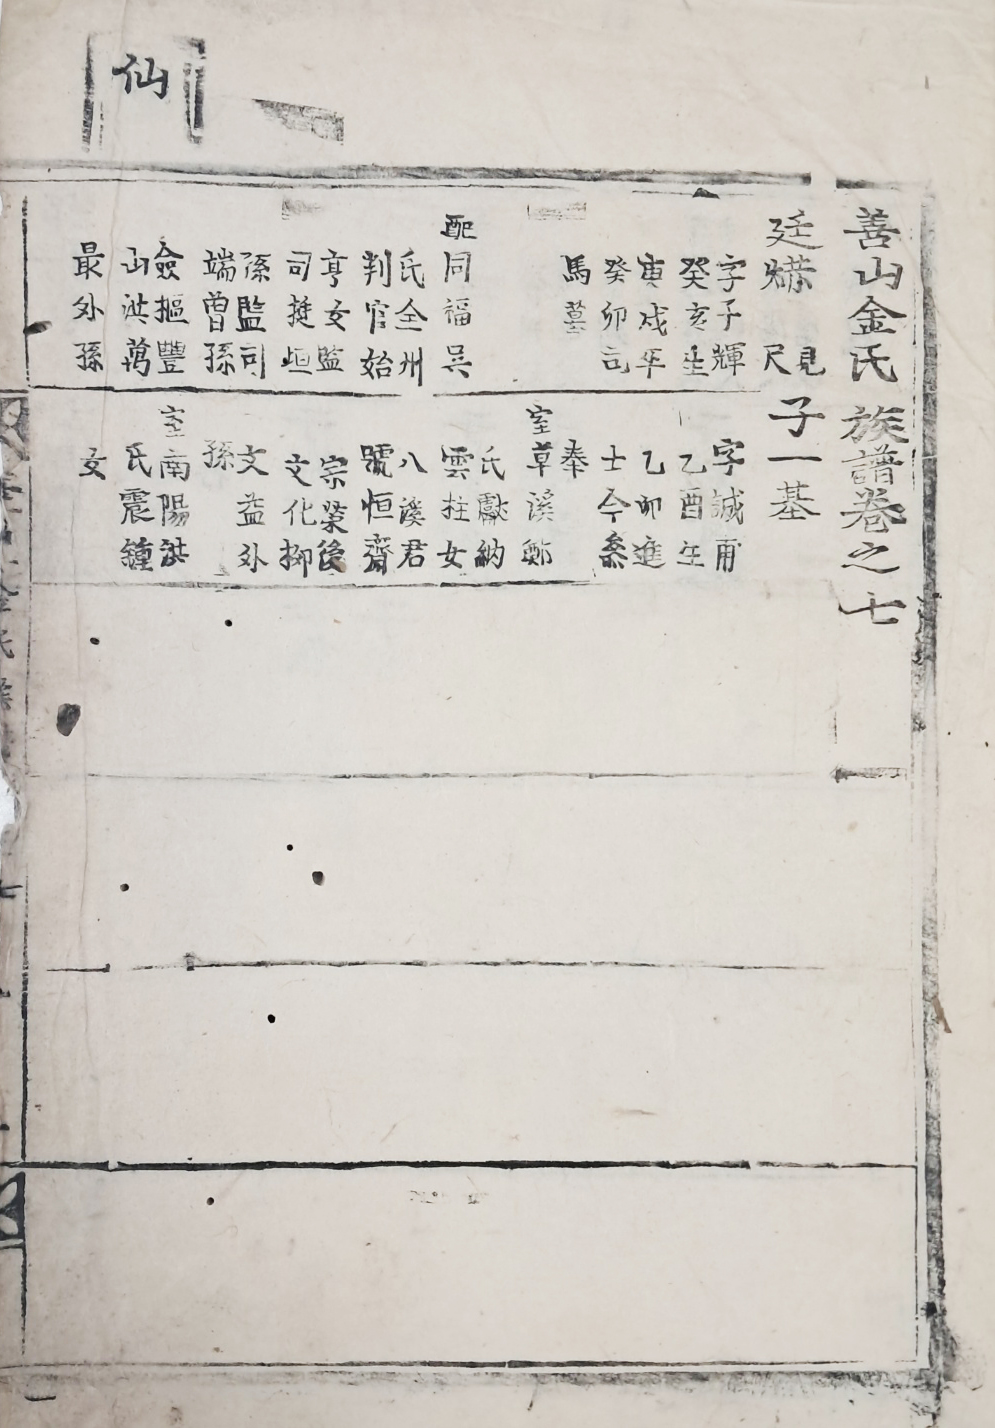 仙
善山金氏族譜卷之七
廷爀
見尺
字子輝
癸亥生
庚戌卒
癸卯司
馬墓
配同福吳
氏全州
判官始
亨女監
司挺垣
孫監司
端曾孫
僉樞豐
山洪萬
最外孫
子一基
字誠甫
乙酉生
乙卯進
士今參
奉
室草溪鄭
氏獻納
雲柱女
八溪君
號恒齋
宗榮後
文化柳
文益外
孫
室南陽洪
氏震鍾
女